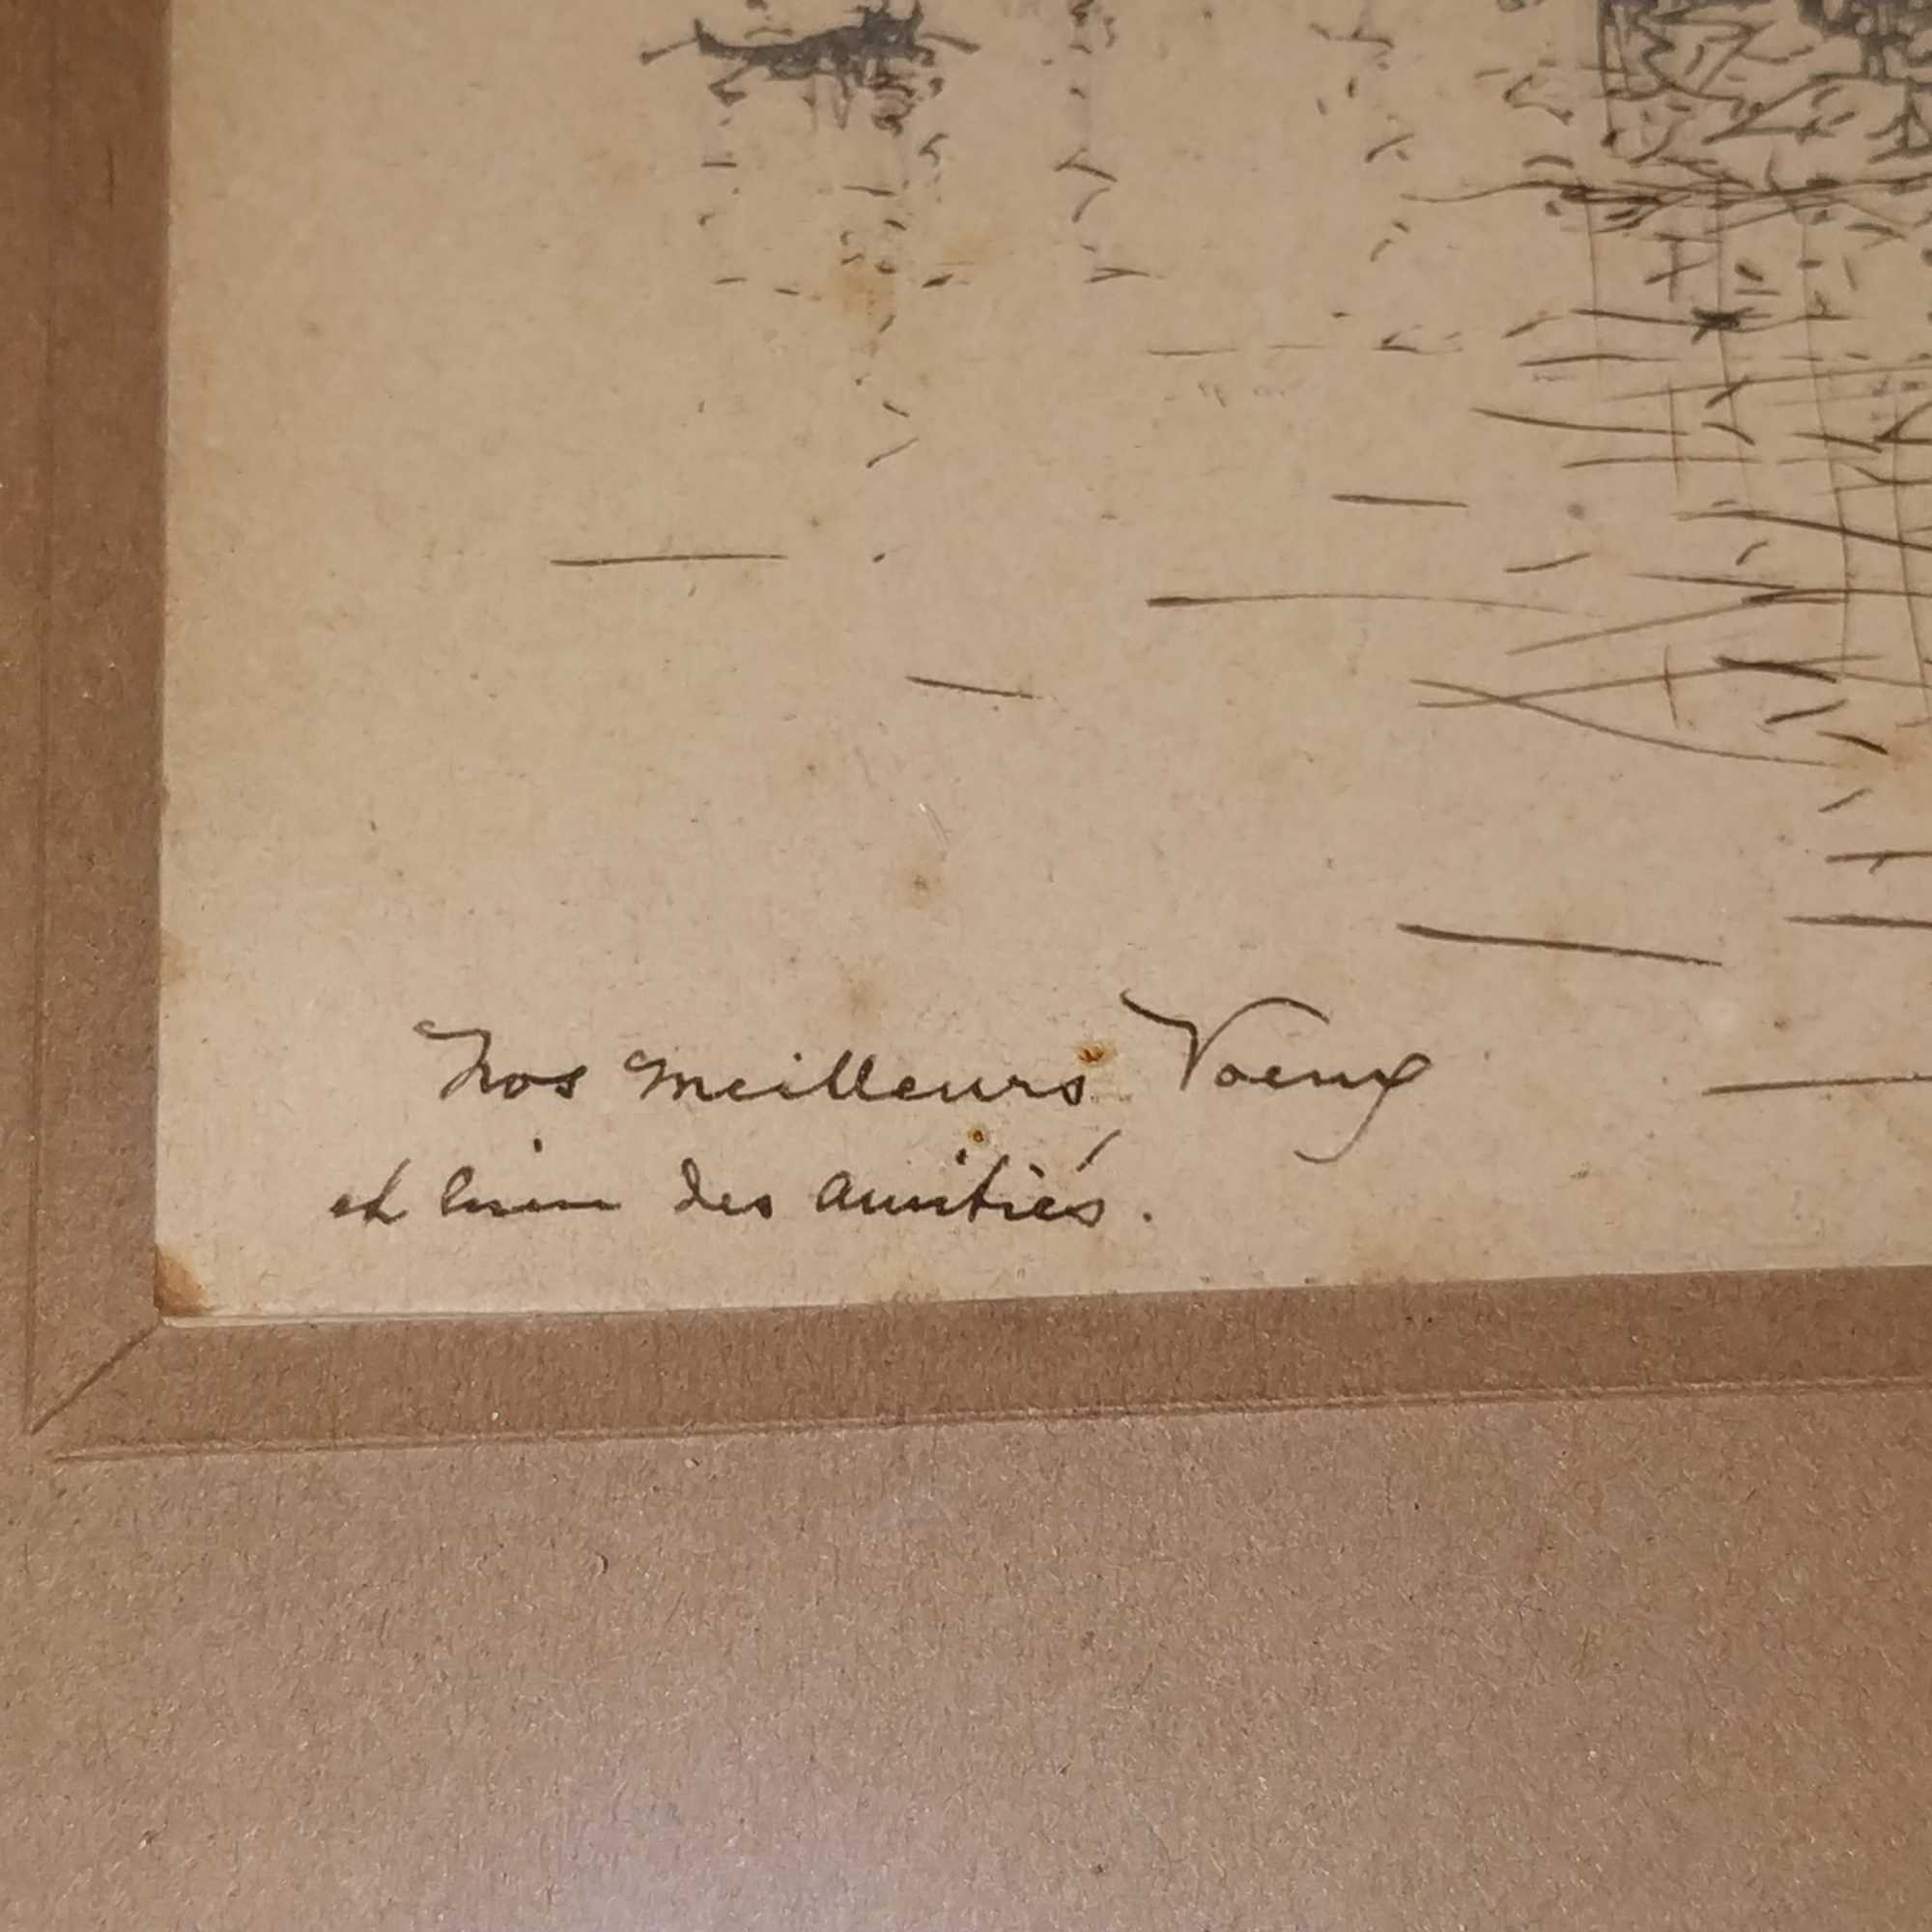 Nos meilleurs Voeux
et bien des amitiés.